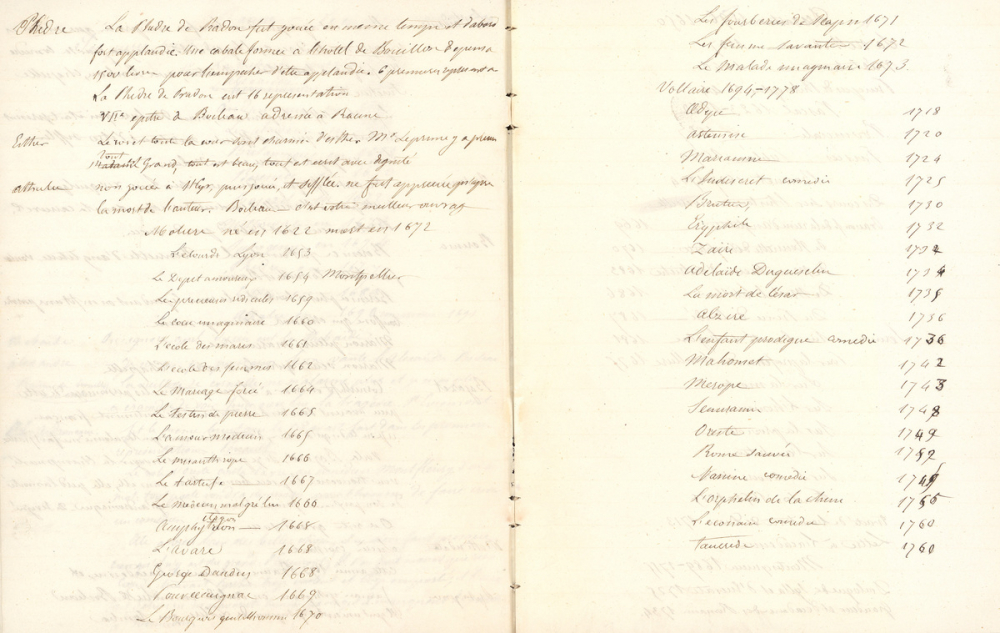 Phèdre La Phèdre de Pradon fut jouée en même temps et d'abord
fort applaudie. Une cabale formée à l'hotel de Bouillon dépensa
1500 livres pour l'empêcher d'etre applaudie. 6 premieres
La Phèdre de Pradon eut 16 representation
VIIe epitre de Boileau adressée à Racine
Esther Le roi et toute la cour sont charmés d'esther. Mr Leprince y a
tout
Grand, tout est beau, tout est ecrit avec dignité
athalie non jouée à St Cyr, puis jouée, et sifflée ne fut appreciée qu'apres
la mort de l'auteur. Boileau — c'est votre meilleur ouvrage
Moliere né en 1622 mort en 1672
L'etourdi Lyon 1653
Le Depit amoureux 1654 Montpellier
Les precieuses ridicules 1659
Le cocu imaginaire 1660
L'ecole des maris 1661
L'ecole des femmes 1662
Le Mariage forcé 1664
Le Festin de pierre 1665
L'amour medecin 1665
Le misanthrope 1666
Le tartufe — 1667
Le Médecin malgré lui 1660
Amphytrion — 1668
L'avare 1668
George Dandin 1668
Pourceaugnac 1669
Le Bourgeois gentilhomme 1670
Les fourberies de Scapin 1671
Les femmes savantes 1672
Le Malade imaginaire 1673
Voltaire 1694-1778
Œdipe 1718
artemise 1720
Mariamne 1724
L'Indiscret comédie 1725
Brutus 1730
Eryphile 1732
Zaire 1732
adélaide Duguesclin 1734
La mort de César 1735
alzire 1736
L'enfant prodigue comédie 1736
Mahomet 1742
Merope 1743
Semiramis 1748
Oreste 1749
Rome sauvée 1752
Nanine comédie 1749
L'orphelin de la chine 1755
L'ecossaise comédie 1760
Tancrède 1760